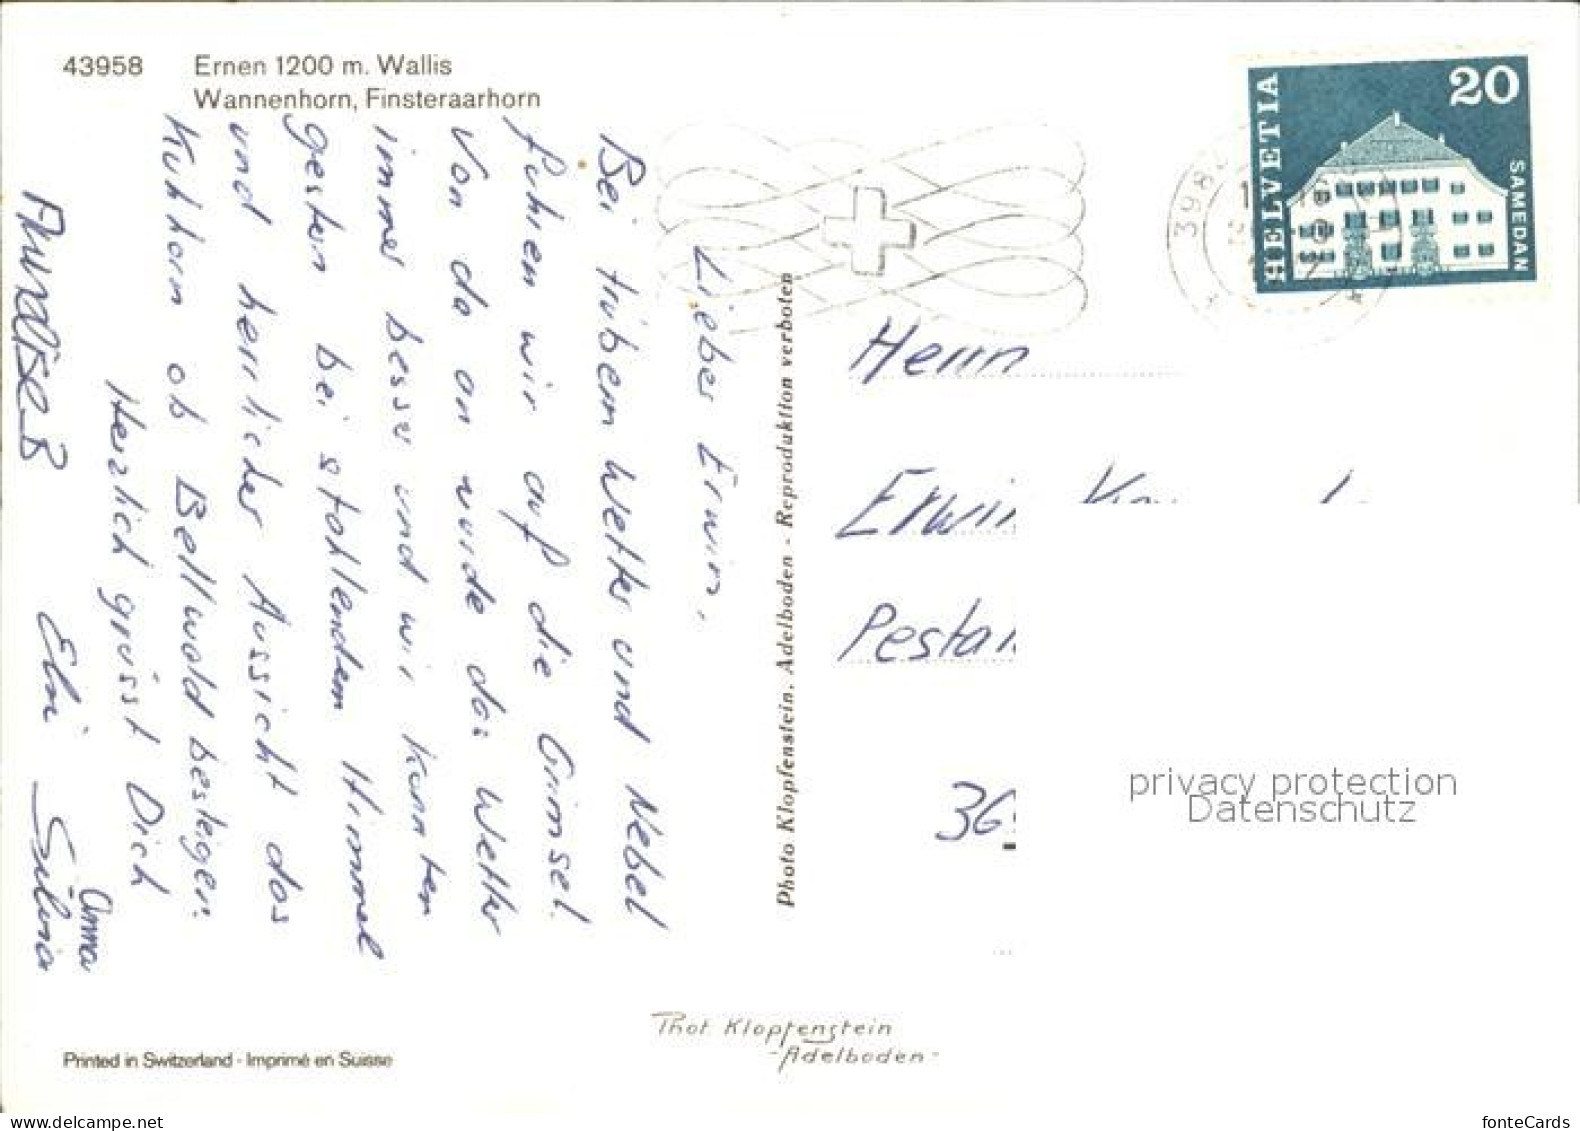 43958 Ernen 1200 m. Wallis
Wannenhorn, Finsteraarhorn
Liebes Erwin,
Bei trübem Wetter und Nebel
fuhren wir auf die Grimsel.
Von da an wurde das Wetter
immer besser und wir konnten
gestern bei stahlendem Himmel
und herrlicher Aussicht das
Kuhhorn ob Bellwald besteigen.
Herzlich grüsst Dich
Elsi Silvia
Anna
Photo Klopfenstein, Adelboden - Reproduktion verboten
HELVETIA
20
SAMEDAN
398
Herrn
Erwin
Pesta
36
privacy protection
Datenschutz
Phot Klopfenstein
-Adelboden-
Printed in Switzerland - Imprimé en Suisse
www.delcampe.net
fonteCards